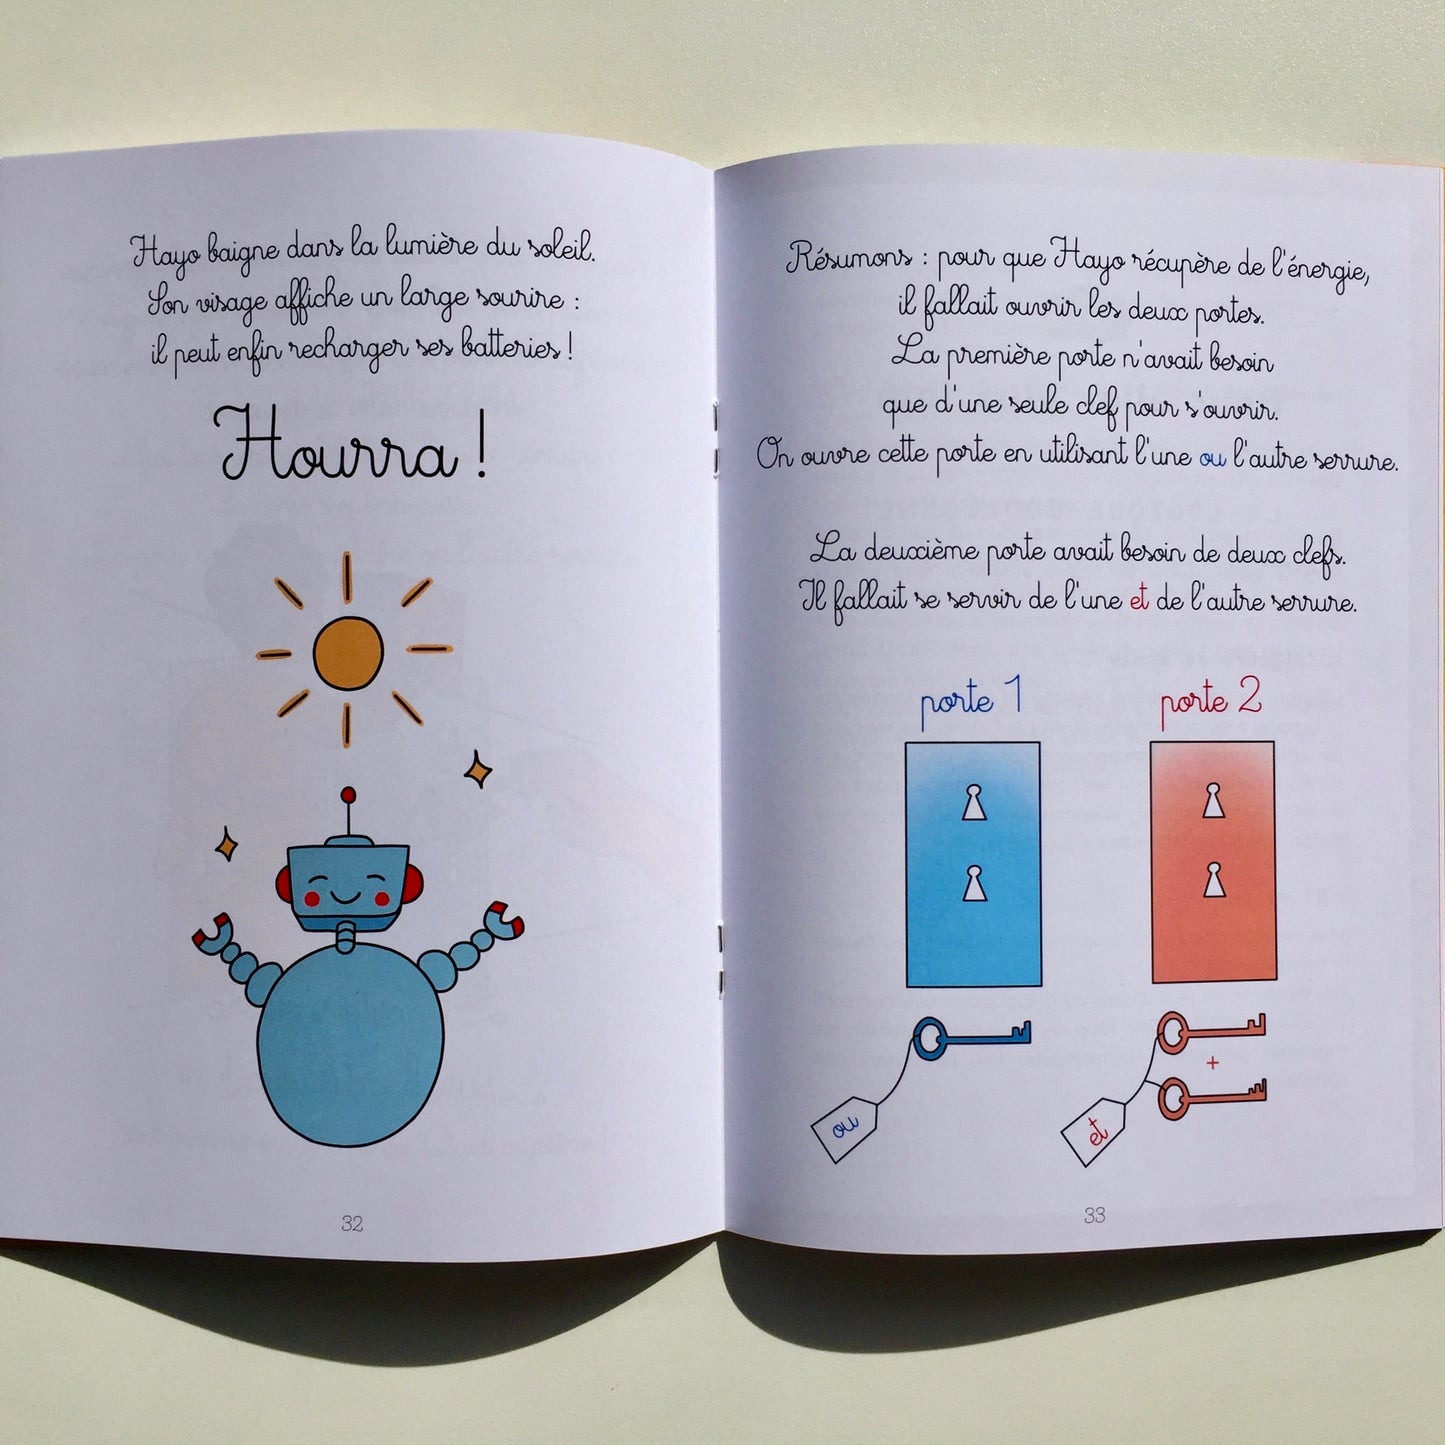 Hayo baigne dans la lumière du soleil.
Son visage affiche un large sourire :
il peut enfin recharger ses batteries !
Hourra !
32
Résumons : pour que Hayo récupère de l'énergie,
il fallait ouvrir les deux portes.
La première porte n'avait besoin
que d'une seule clef pour s'ouvrir.
On ouvre cette porte en utilisant l'une ou l'autre serrure.
La deuxième porte avait besoin de deux clefs.
Il fallait se servir de l'une et de l'autre serrure.
porte 1
porte 2
+
ou
et
33